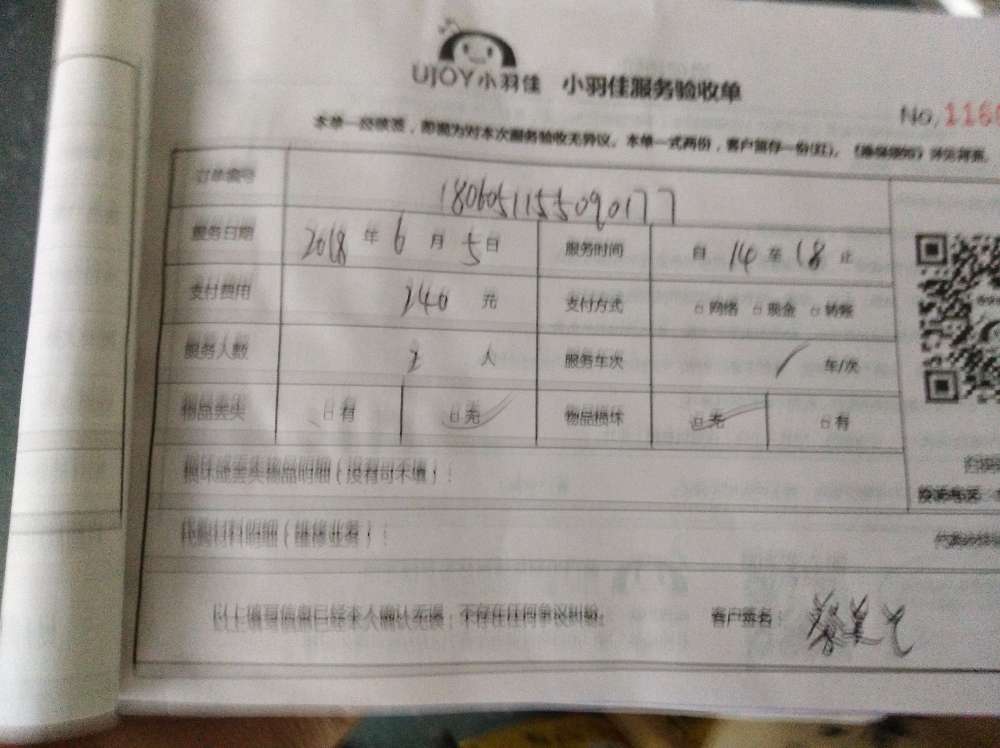 UJOY小羽佳 小羽佳服务验收单
No. 1166
本单一经核签，即视为对本次服务验收无异议。本单一式两份，客户留存一份(红)。
订单编号 180605115509017 7
服务日期 2018 年 6 月 5 日 服务时间 自 14 至 18 止
支付费用 240 元 支付方式 □网络 □现金 □转账
服务人数 2 人 服务车次 / 车/次
物品丢失 □有 □无 物品损坏 □无 □有
损坏或丢失物品明细（没有可不填）：
代购材料明细（维修业务）：
以上填写信息已经本人确认无误，不存在任何争议纠纷。 客户签名：